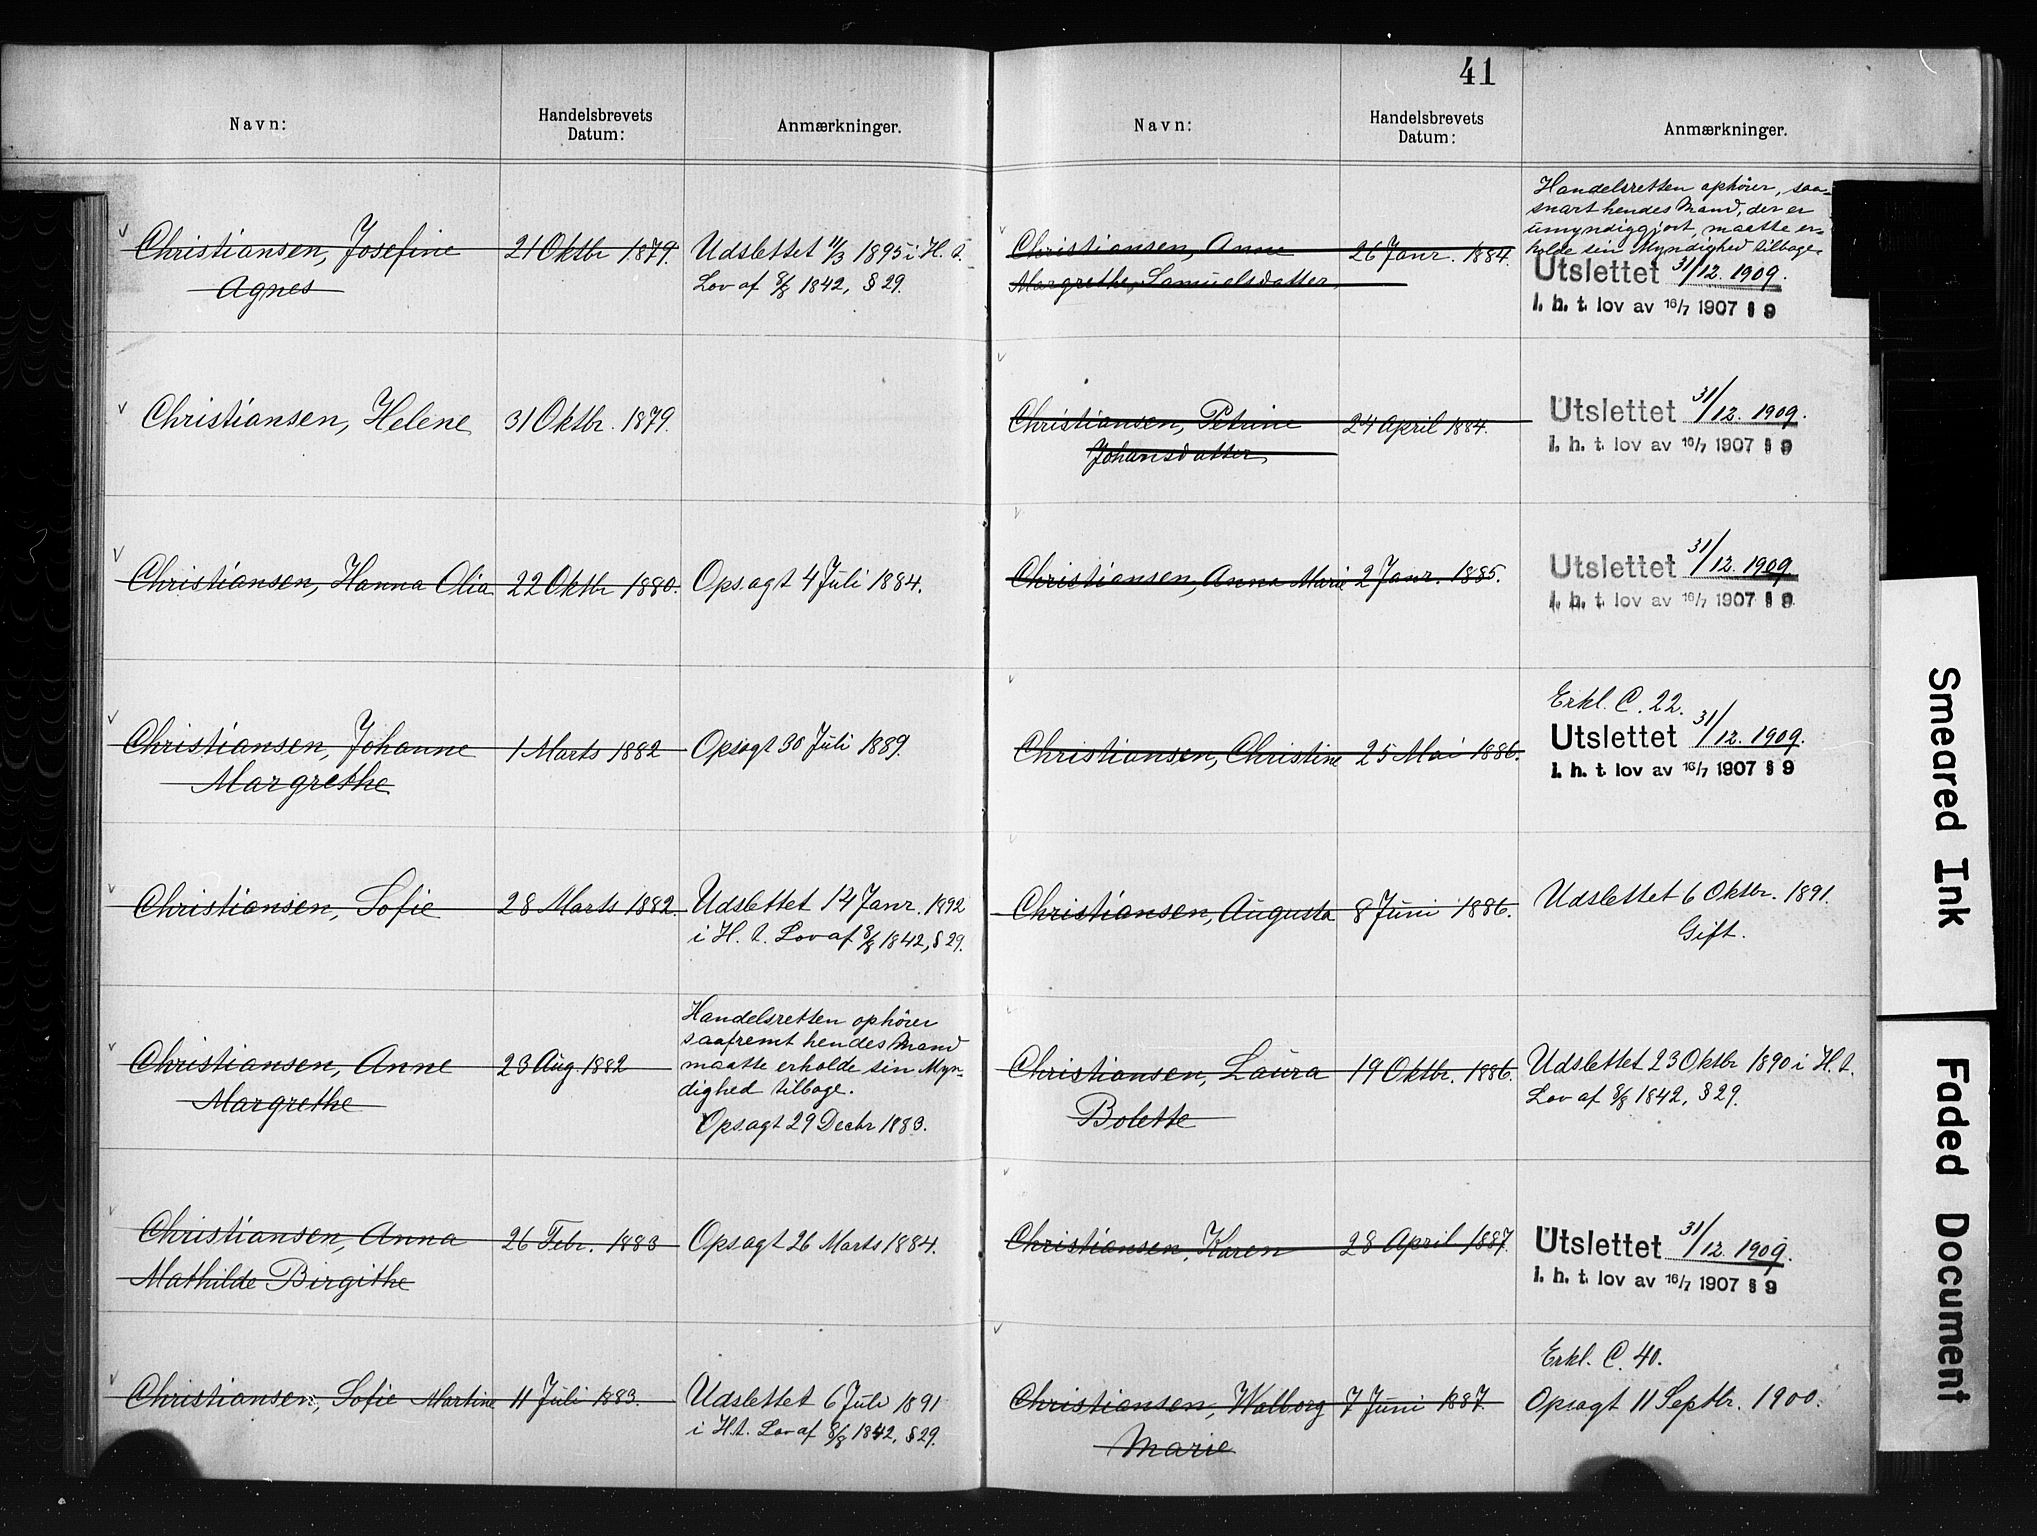 Navn:
Handelsbrevets
Datum:
Anmærkninger.
Christiansen, Josefine 21 Oktbr 1879. Udslettet 11/3 1895 i H. t.
Agnes Lov af 8/8 1842, § 29.
Christiansen, Helene 31 Oktbr. 1879.
Christiansen, Hanna Olia 22 Oktbr 1880. Opsagt 4 Juli 1884.
Christiansen, Johanne 1 Marts 1882 Opsagt 30 Juli 1889.
Margrethe
Christiansen, Sofie 28 Marts 1882 Udslettet 14 Janr. 1892
i H. t. Lov af 8/8 1842, § 29.
Handelsretten ophører
saafremt hendes Mand
Christiansen, Anne 23 Aug 1882 maatte erholde sin Myn-
dighed tilbage.
Margrethe
Opsagt 29 Decbr 1883.
Christiansen, Anna 26 Febr. 1883 Opsagt 26 Marts 1884.
Mathilde Birgithe
Christiansen, Sofie Martine 11 Juli 1883. Udslettet 6 Juli 1891
i H.t. Lov af 8/8 1842, § 29.
41
Navn:
Handelsbrevets
Datum:
Anmærkninger.
Handelsretten ophører, saa-
snart hendes Mand, der er
umyndiggjort, maatte er-
holde sin Myndighed tilbage.
Christiansen, Anne 26 Janr. 1884.
Margrethe, Samuelsdatter
Utslettet 31/12. 1909.
i. h. t. lov av 16/7 1907 § 9
Christiansen, Petrine 24 April 1884. Utslettet 31/12. 1909.
Johansdatter i. h. t. lov av 16/7 1907 § 9
Christiansen, Anna Marie 2 Janr. 1885. Utslettet 31/12. 1909
i. h. t. lov av 16/7 1907 § 9
Erkl. C. 22.
Christiansen, Christine 25 Mai 1886. Utslettet 31/12. 1909.
i. h. t. lov av 16/7 1907 § 9
Christiansen, Augusta 8 Juni 1886. Udslettet 6 Oktbr. 1891.
Gift.
Christiansen, Laura 19 Oktbr. 1886. Udslettet 23 Oktbr 1890 i H. t.
Bolette Lov af 8/8 1842, § 29.
Christiansen, Karen 28 April 1887. Utslettet 31/12. 1909.
i. h. t. lov av 16/7 1907 § 9
Erkl. C. 40.
Christiansen, Walborg 7 Juni 1887. Opsagt 11 Septbr. 1900.
Marie
Smeared Ink
Faded Document